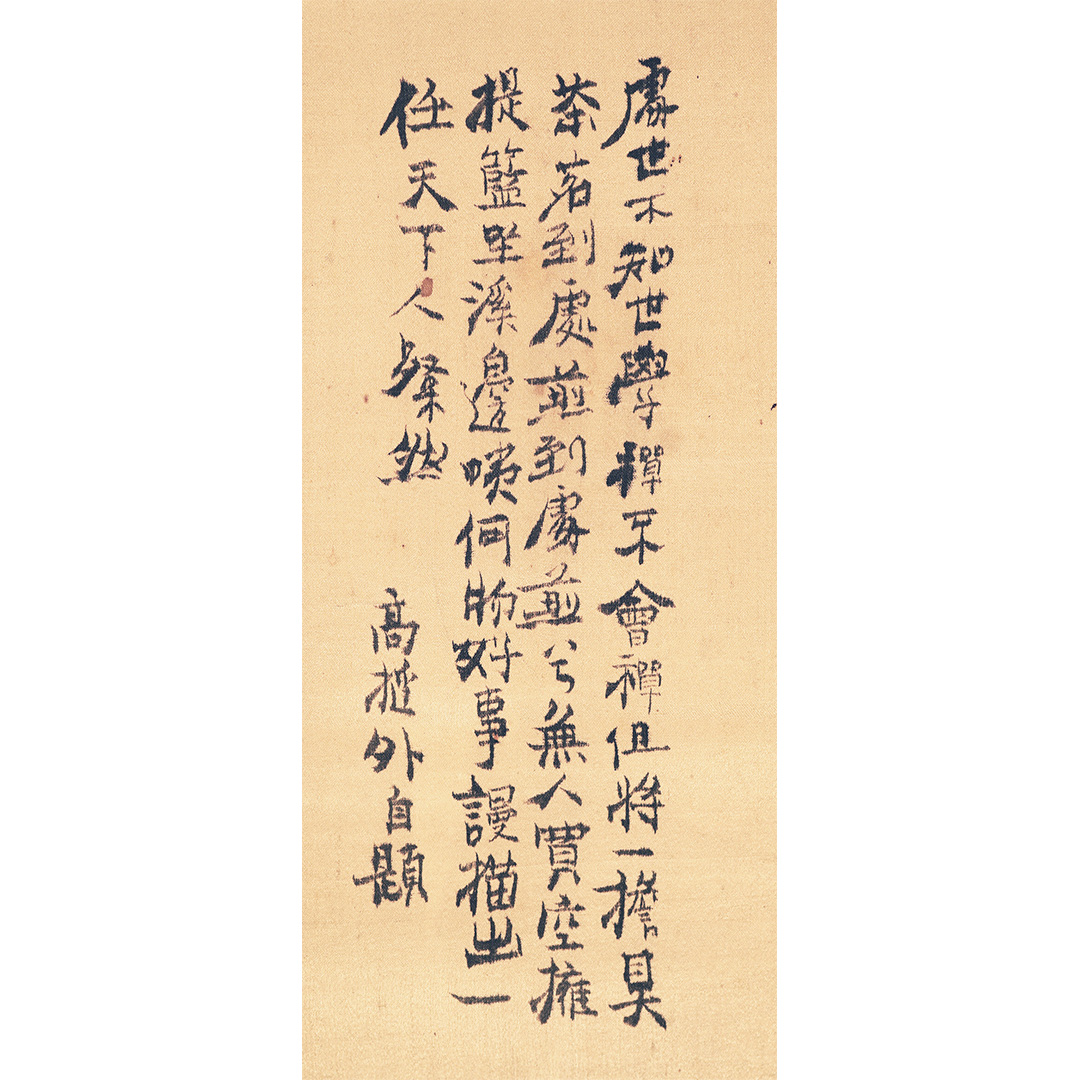 處世不知世學禪不會禪但將一擔具
茶茗到處煎到處煎兮無人買空擁
提籃坐溪邊咦何物好事謾描出一
任天下人粲然
高遊外自題